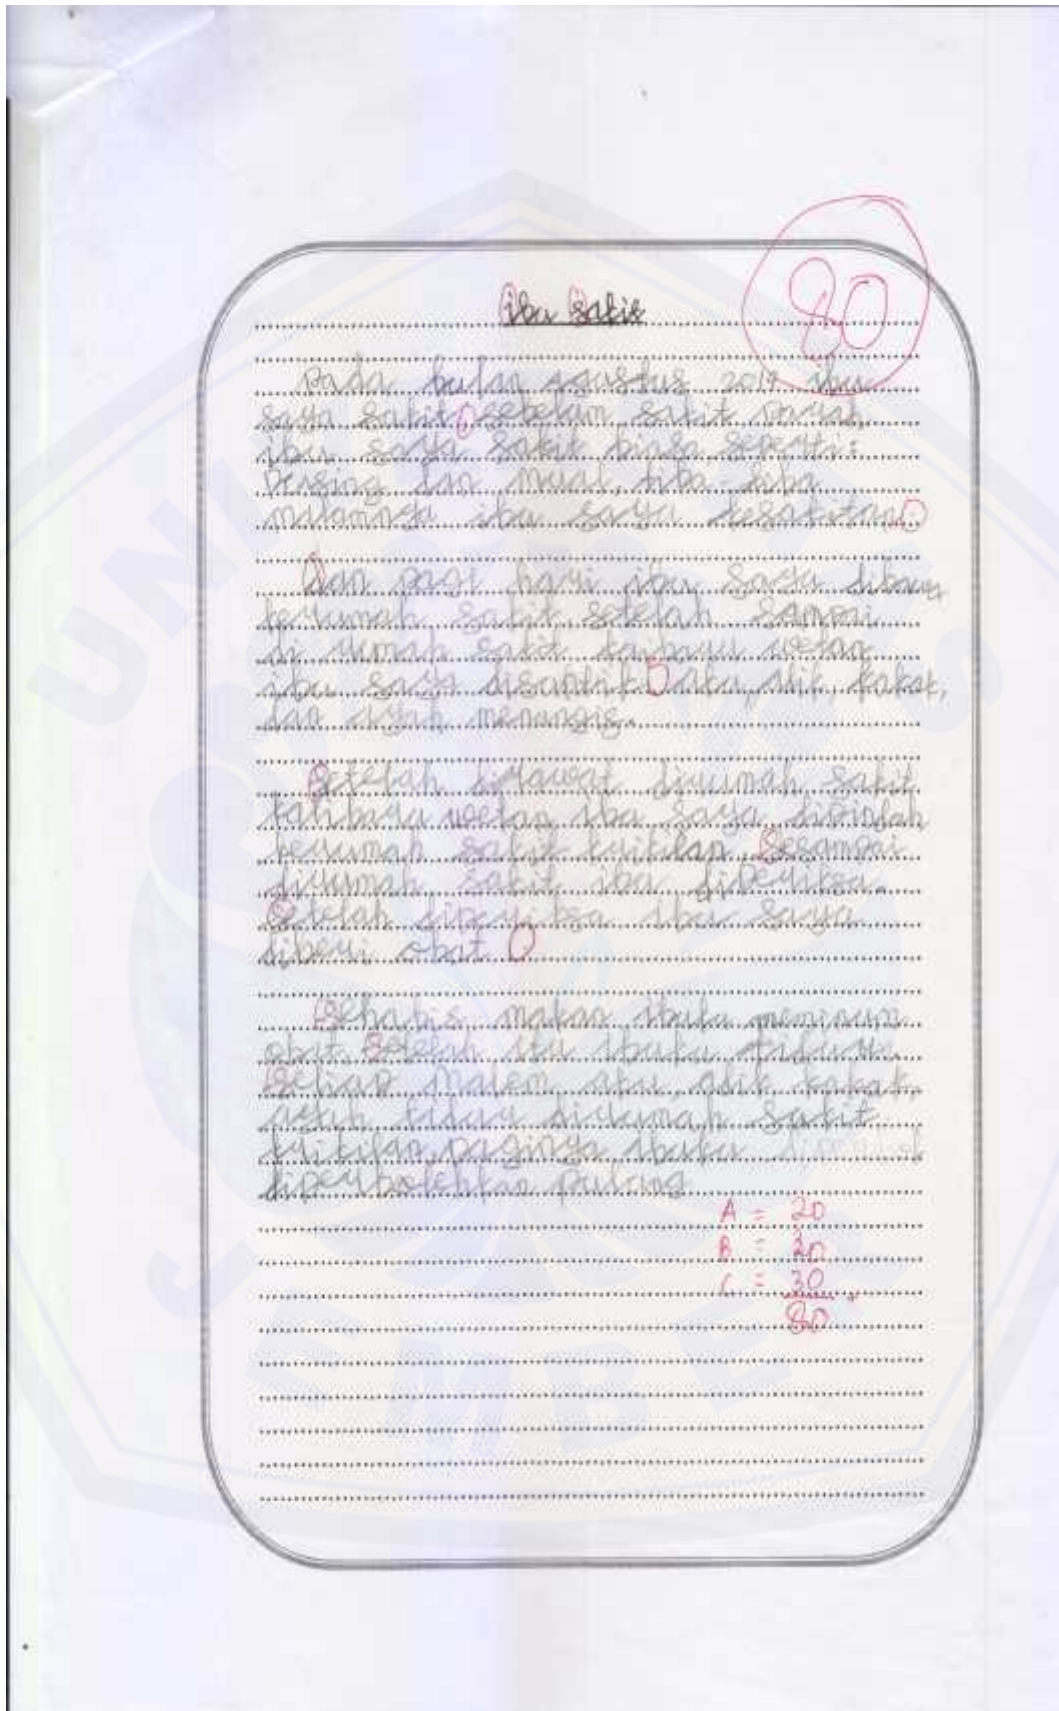 ibu sakit
80
Pada bulan Agustus 2019 ibu
saya sakit, sebelum sakit parah
ibu saya sakit biasa seperti:
Pusing dan mual, tiba-tiba
malamnya ibu saya kesakitan.
dan pagi hari ibu saya dibawa
kerumah sakit setelah sampai
di rumah sakit kalibaru wetan
ibu saya disuntik aku, adik, kakak,
dan ayah menangis.
Setelah dirawat dirumah sakit
kalibaru wetan ibu saya dipindah
kerumah sakit krikilan, Sesampai
dirumah sakit ibu diperiksa.
Setelah diperiksa ibu saya
diberi obat
Sehabis makan ibuku meminum
obat Setelah itu ibuku tidur.
Setiap malem aku adik kakak,
ayah tidur dirumah sakit
krikilan, paginya ibuku
diperbolehkan pulang
A = 20
B = 30
C = 30 +
80